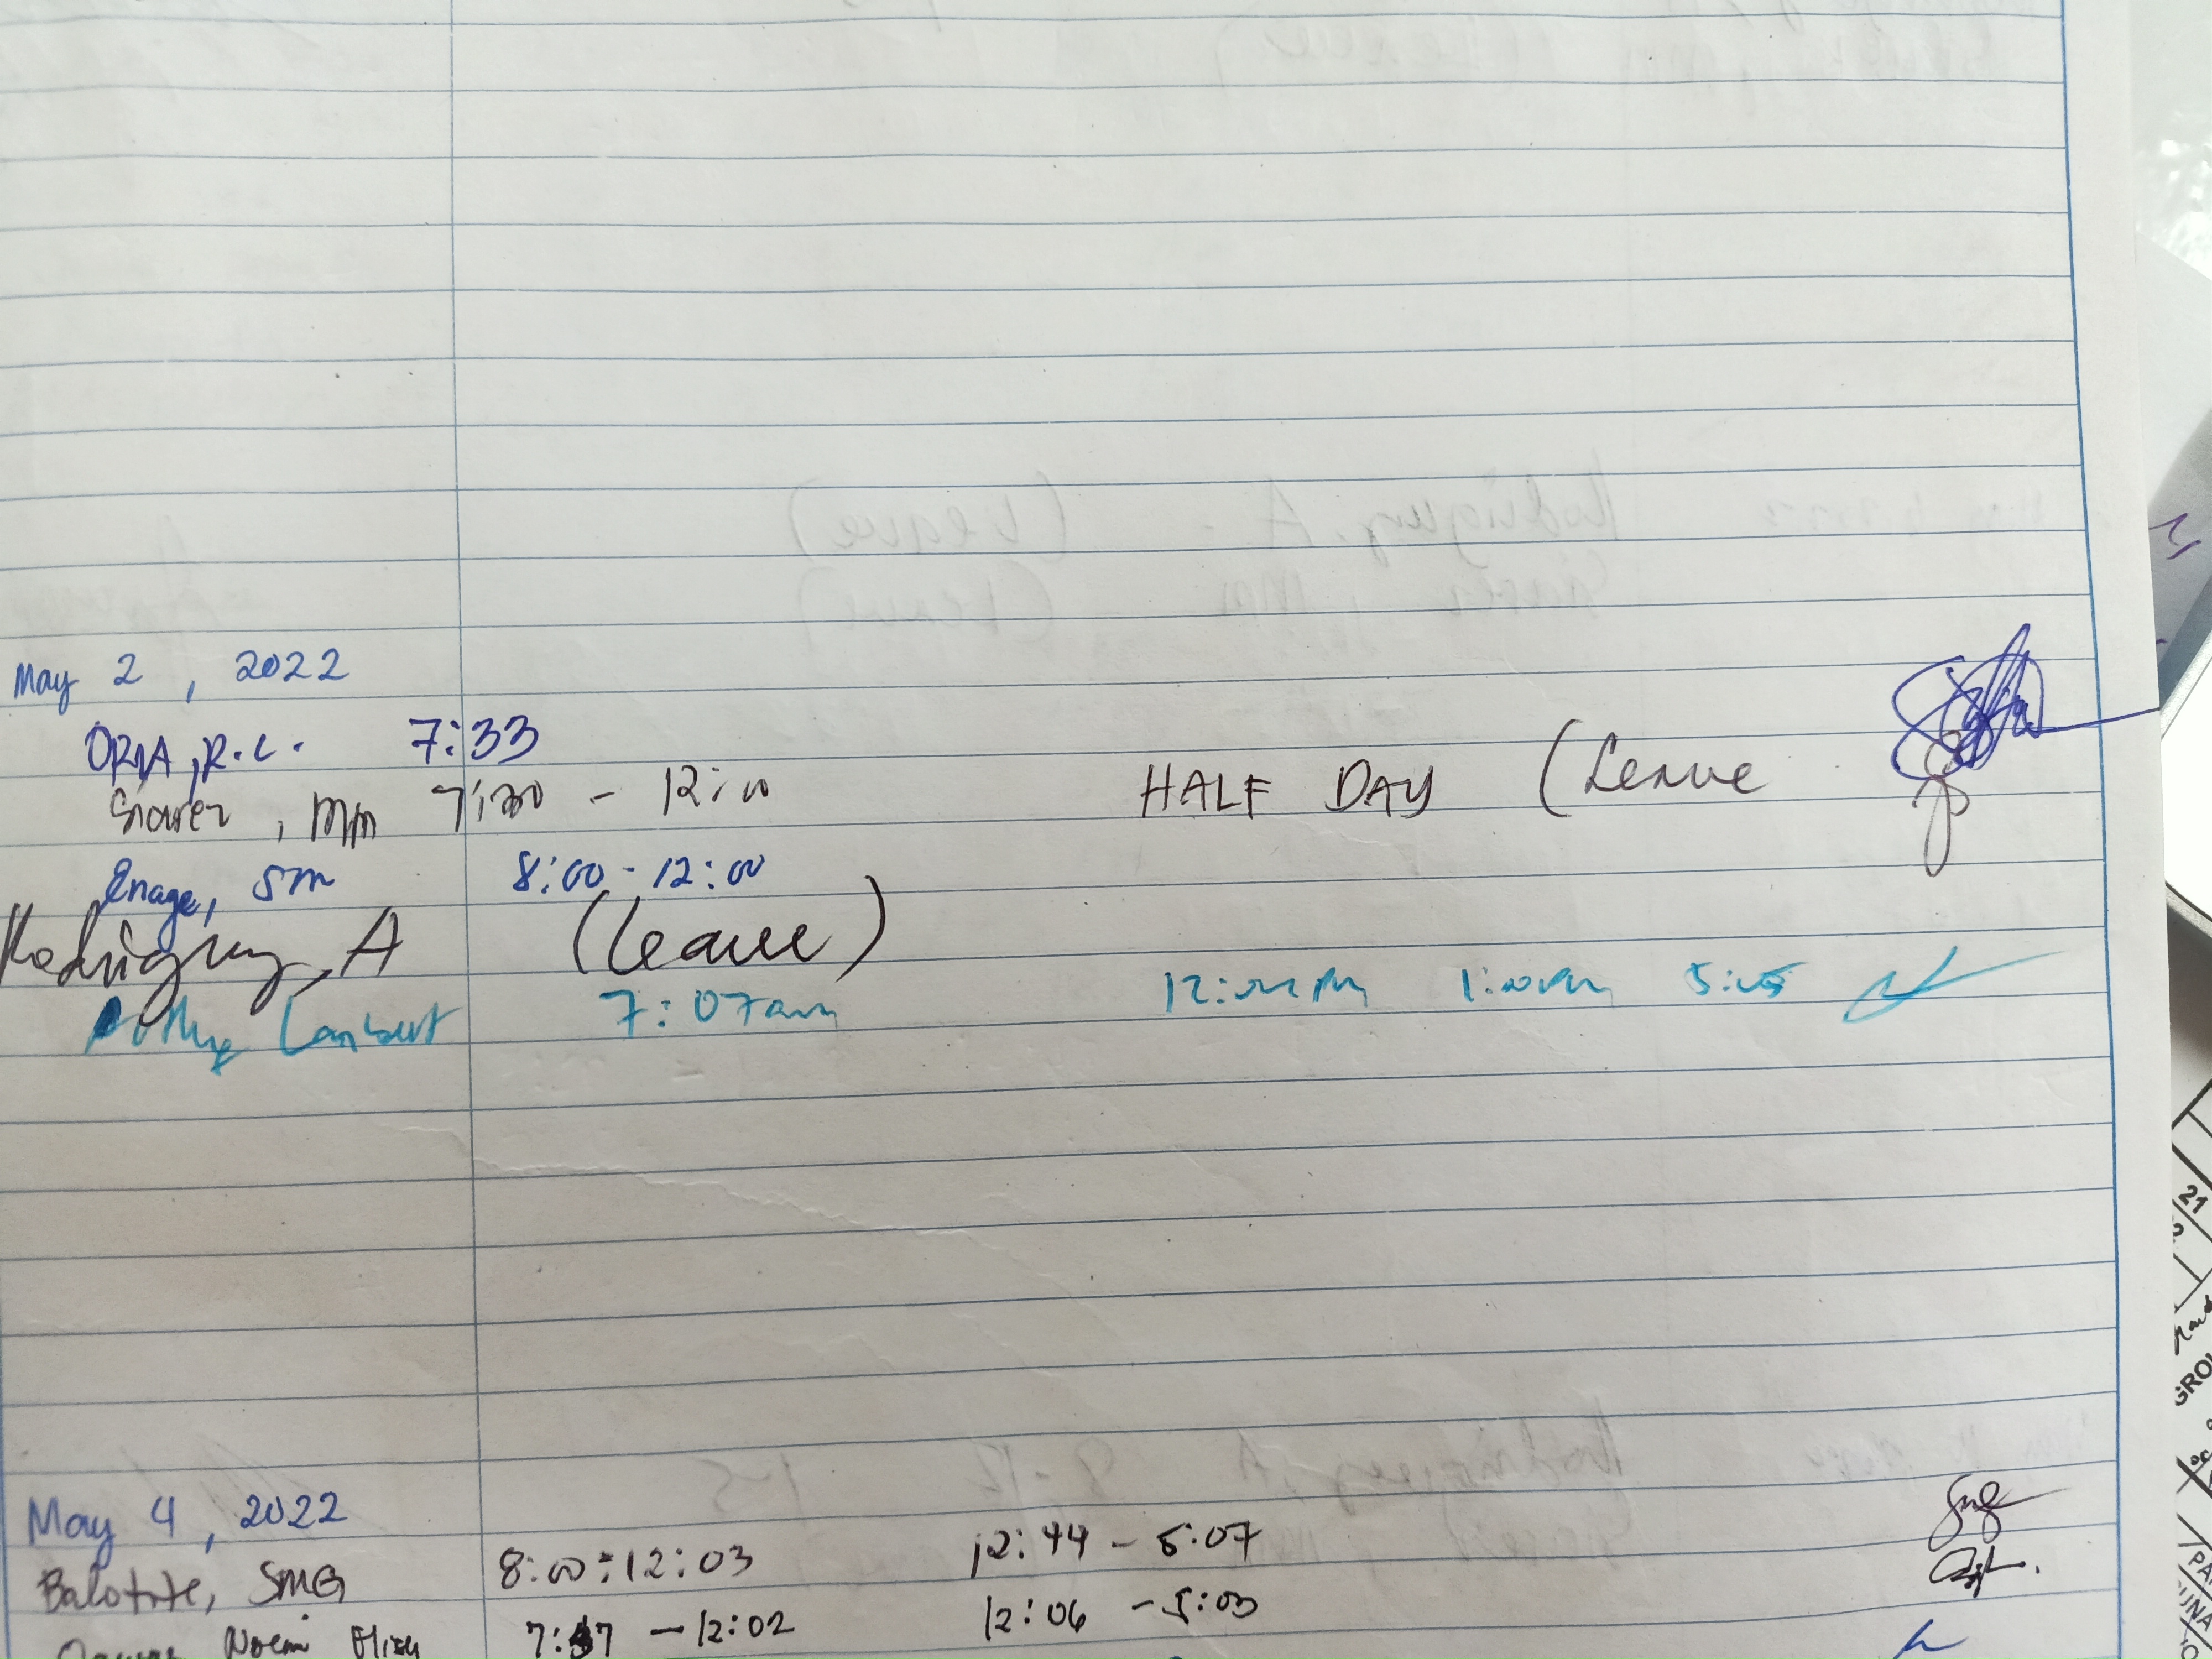 May 2, 2022
ORIA, R.C. 7:33
Siarez, MM 7:30 - 12:00 HALF DAY (Leave
Enage, SM 8:00 - 12:00
Rodriguez, A (leave)
Lambert 7:07am 12:02Pm 1:00Pm 5:05
May 4, 2022
Balotite, SMG 8:00-12:03 12:44 - 5:07
Noemi 7:57 - 12:02 12:06 - 5:03
21